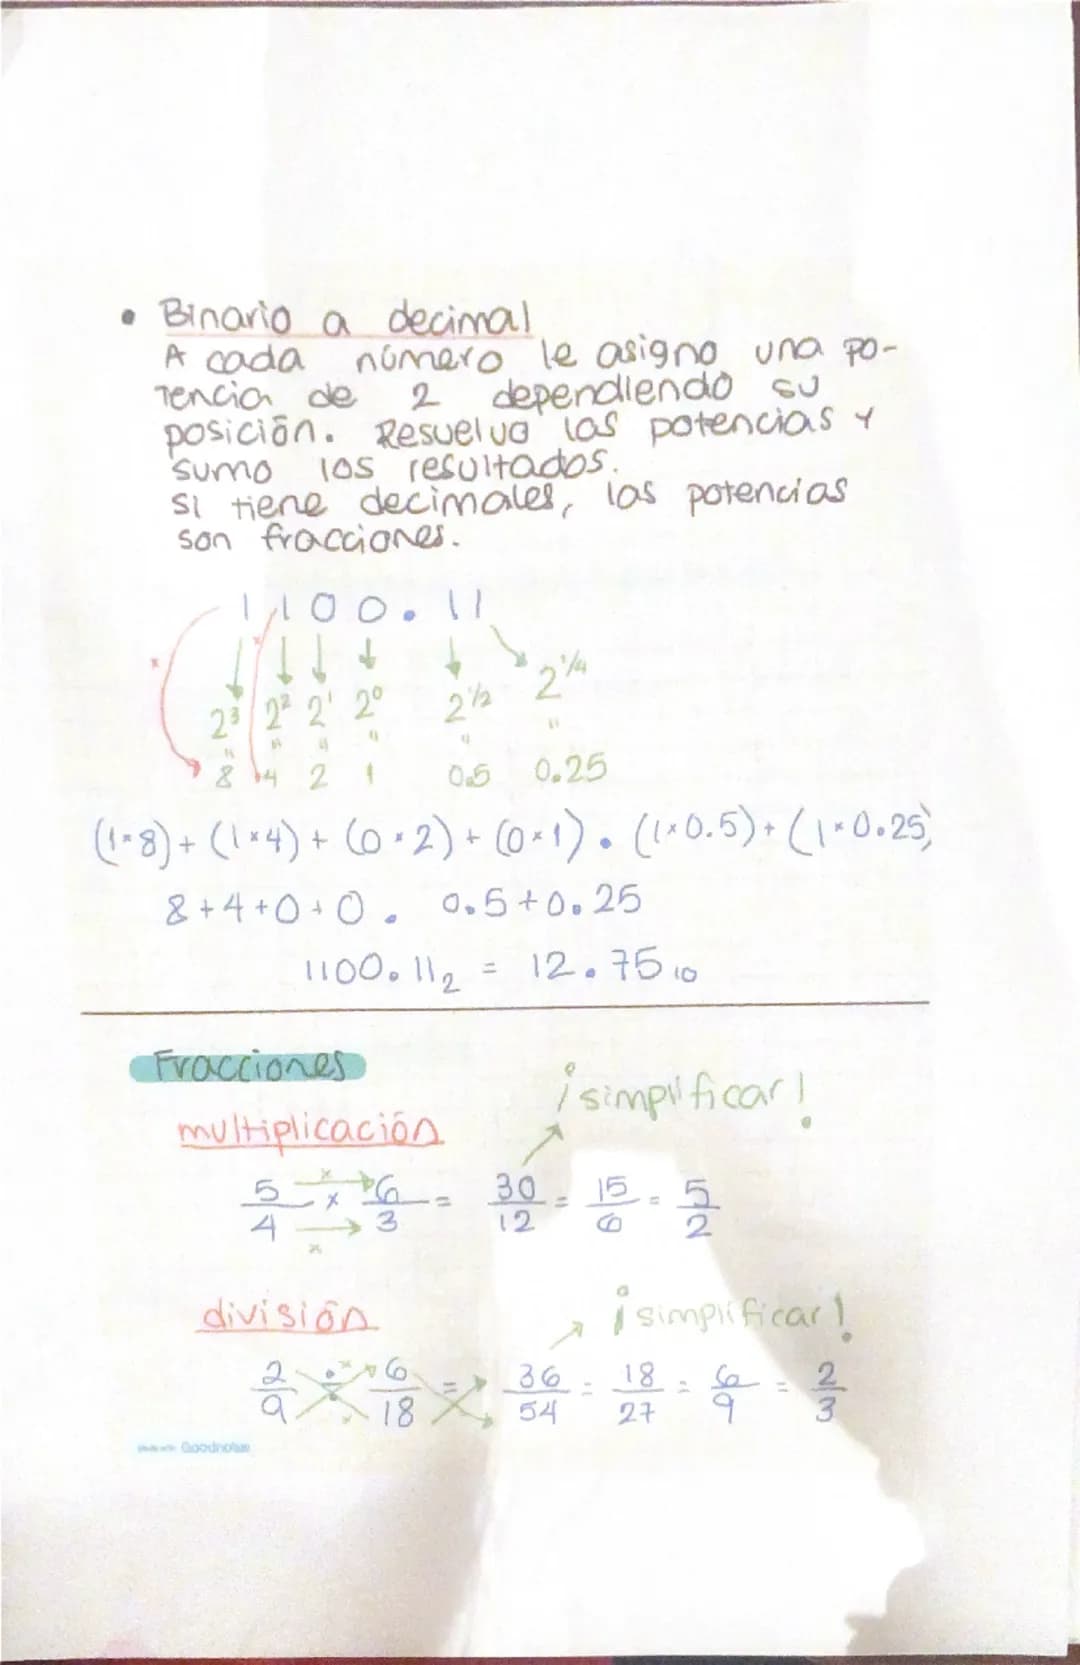 • Binario a decimal
A cada número le asigno una po-
tencia de 2 dependiendo su
posición. Resuelvo las potencias y
sumo los resultados.
Si tiene decimales, las potencias
son fracciones.
1 1 0 0 . 1 1
x x
2³ 2² 2¹ 2⁰ 2^1/2 2^1/4
" " " " " "
8 4 2 1 0.5 0.25
(1×8) + (1×4) + (0×2) + (0×1) . (1×0.5) + (1×0.25)
8 + 4 + 0 + 0 . 0.5 + 0.25
1100.11₂ = 12.75₁₀
Fracciones
¡simplificar!
multiplicación
5/4 × 6/3 = 30/12 = 15/6 = 5/2
x x
división
¡simplificar!
2/9 ÷ 6/18 = 36/54 = 18/27 = 6/9 = 2/3
x x
Goodnotes